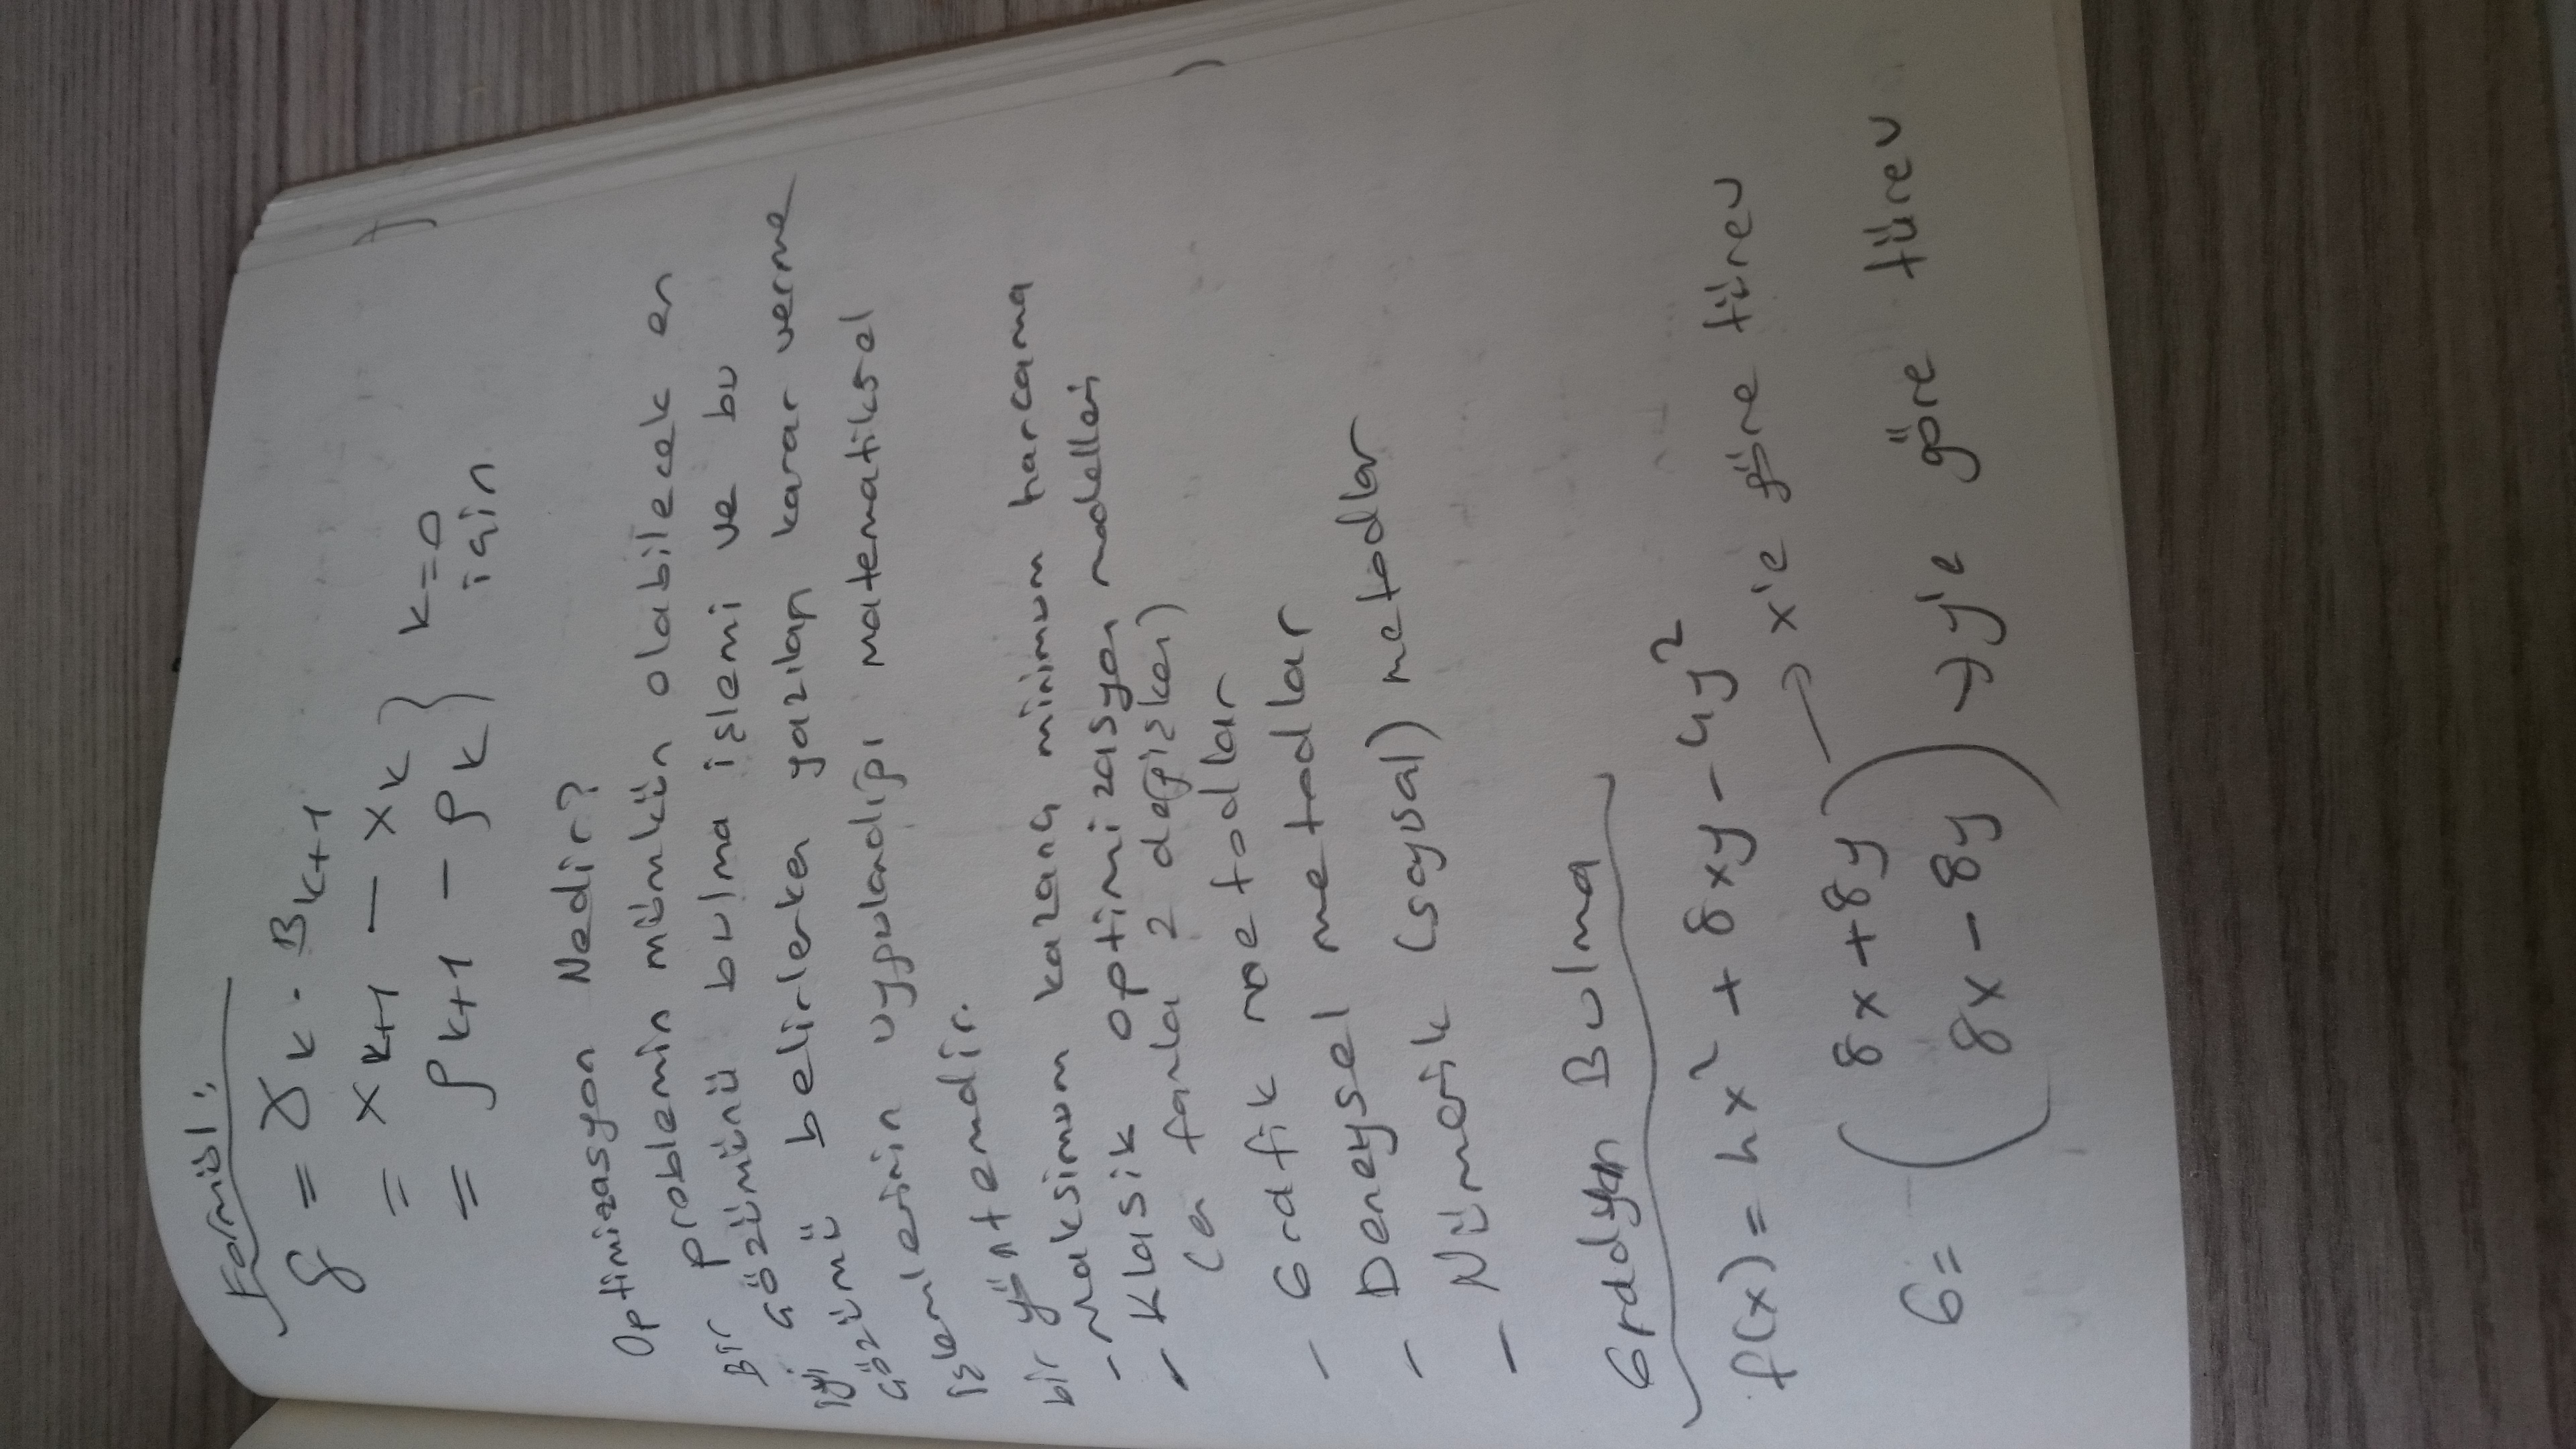 Formül:
δ = γk · Bk+1
= xk+1 - xk
= ρk+1 - ρk } k=0
için
Optimizasyon Nedir?
Bir problemin mümkün olabilecek en
iyi çözümünü bulma işlemi ve bu
çözümü belirlerken yazılan karar verme
işlemlerinin uygulandığı matematiksel
bir yöntemdir.
- Maksimum kazanç minimum harcama
- Klasik optimizasyon modelleri
(en fazla 2 değişken)
- Grafik metodlar
- Deneysel metodlar
- Nümerik (sayısal) metodlar
Gradyan Bulma
f(x) = 4x² + 8xy - 4y²
8x + 8y → x'e göre türev
G =
8x - 8y → y'e göre türev